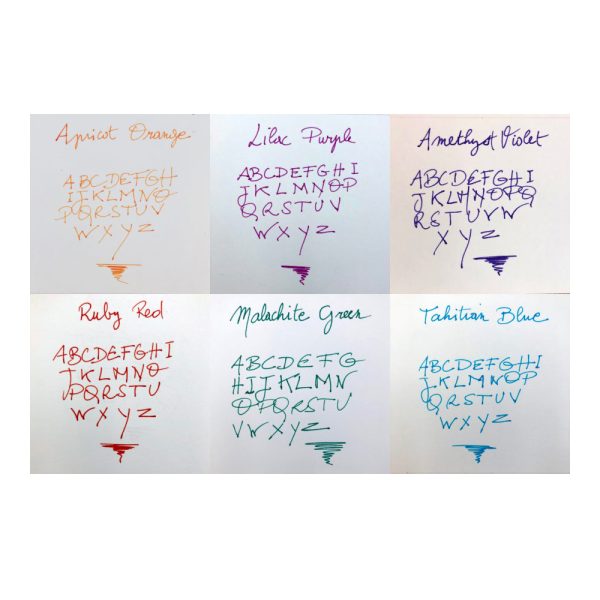 Apricot Orange
ABCDEFGH
IJKLMNO
PQRSTUV
WXYZ
Lilac Purple
ABCDEFGHI
JKLMNOP
QRSTUV
WXYZ
Amethyst Violet
ABCDEFGHI
JKLMNOPQ
RSTUVW
XYZ
Ruby Red
ABCDEFGHI
JKLMNO
PQRSTU
WXYZ
Malachite Green
ABCDEFG
HIJKLMN
OPQRSTU
VWXYZ
Tahitian Blue
ABCDEFGHI
JKLMNOP
QRSTUV
WXYZ